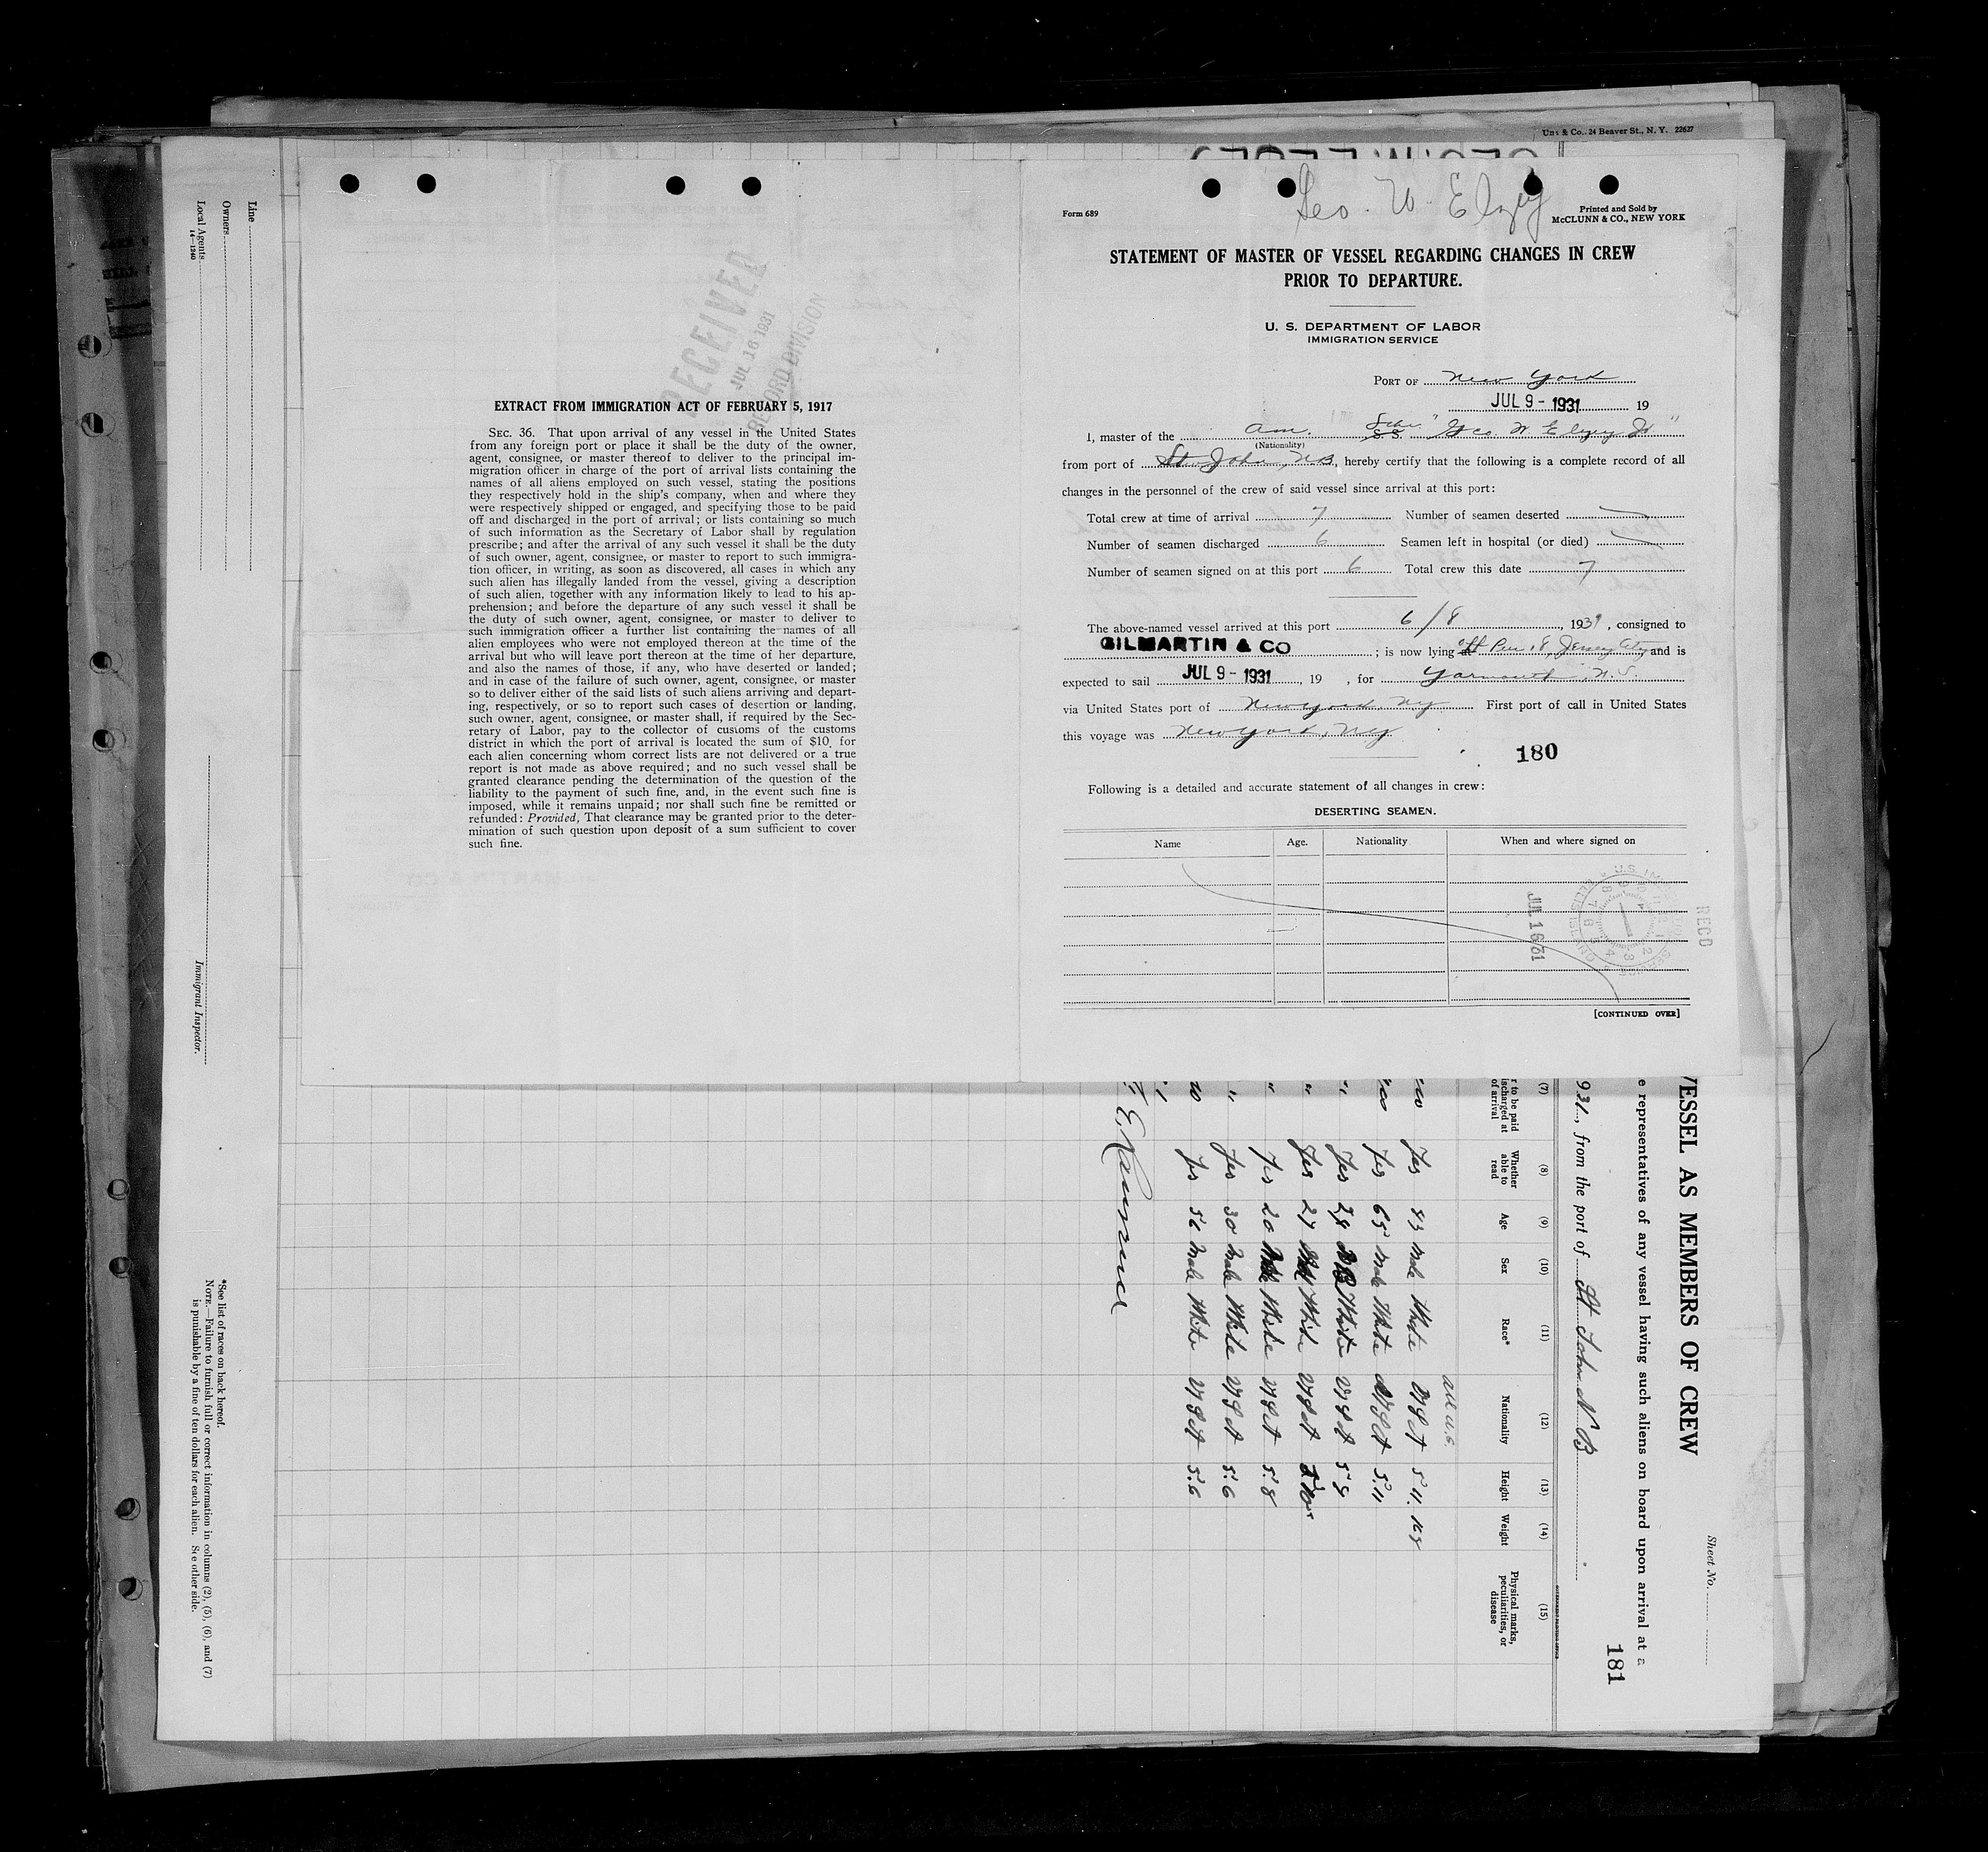 Uns & Co., 24 Beaver St., N. Y. 22627
Line
Owners
Local Agents
14—1240
Immigrant Inspector.
*See list of races on back hereof.
NOTE.—Failure to furnish full or correct information in columns (2), (5), (6), and (7)
is punishable by a fine of ten dollars for each alien. See other side.
RECEIVED
JUL 16 1931
RECORD DIVISION
EXTRACT FROM IMMIGRATION ACT OF FEBRUARY 5, 1917
SEC. 36. That upon arrival of any vessel in the United States
from any foreign port or place it shall be the duty of the owner,
agent, consignee, or master thereof to deliver to the principal im-
migration officer in charge of the port of arrival lists containing the
names of all aliens employed on such vessel, stating the positions
they respectively hold in the ship's company, when and where they
were respectively shipped or engaged, and specifying those to be paid
off and discharged in the port of arrival; or lists containing so much
of such information as the Secretary of Labor shall by regulation
prescribe; and after the arrival of any such vessel it shall be the duty
of such owner, agent, consignee, or master to report to such immigra-
tion officer, in writing, as soon as discovered, all cases in which any
such alien has illegally landed from the vessel, giving a description
of such alien, together with any information likely to lead to his ap-
prehension; and before the departure of any such vessel it shall be
the duty of such owner, agent, consignee, or master to deliver to
such immigration officer a further list containing the names of all
alien employees who were not employed thereon at the time of the
arrival but who will leave port thereon at the time of her departure,
and also the names of those, if any, who have deserted or landed;
and in case of the failure of such owner, agent, consignee, or master
so to deliver either of the said lists of such aliens arriving and depart-
ing, respectively, or so to report such cases of desertion or landing,
such owner, agent, consignee, or master shall, if required by the Sec-
retary of Labor, pay to the collector of customs of the customs
district in which the port of arrival is located the sum of $10 for
each alien concerning whom correct lists are not delivered or a true
report is not made as above required; and no such vessel shall be
granted clearance pending the determination of the question of the
liability to the payment of such fine, and, in the event such fine is
imposed, while it remains unpaid; nor shall such fine be remitted or
refunded: Provided, That clearance may be granted prior to the deter-
mination of such question upon deposit of a sum sufficient to cover
such fine.
Geo. W. Elzey
Form 689
Printed and Sold by
McCLUNN & CO., NEW YORK
STATEMENT OF MASTER OF VESSEL REGARDING CHANGES IN CREW
PRIOR TO DEPARTURE.
U. S. DEPARTMENT OF LABOR
IMMIGRATION SERVICE
PORT OF New York
JUL 9 - 1931 19
I, master of the Am. Schr S. S. "Geo W. Elzey Jr"
(Nationality)
from port of St. John, N.B. hereby certify that the following is a complete record of all
changes in the personnel of the crew of said vessel since arrival at this port:
Total crew at time of arrival 7 Number of seamen deserted
Number of seamen discharged 6 Seamen left in hospital (or died)
Number of seamen signed on at this port 6 Total crew this date 7
The above-named vessel arrived at this port 6/8, 1931, consigned to
GILMARTIN & CO; is now lying at Pier 18, Jersey City and is
expected to sail JUL 9 - 1931, 19 , for Yarmouth, N.S.
via United States port of New York, NY First port of call in United States
this voyage was New York, NY
180
Following is a detailed and accurate statement of all changes in crew:
DESERTING SEAMEN.
Name Age. Nationality When and where signed on
JUL 16 31
RECD
[CONTINUED OVER]
VESSEL AS MEMBERS OF CREW
Sheet No.
e representatives of any vessel having such aliens on board upon arrival at a
931, from the port of St John N B
181
(7) (8) (9) (10) (11) (12) (13) (14) (15)
r to be paid
ischarged at
of arrival
Whether
able to
read
Age
Sex
Race*
Nationality
Height
Weight
Physical marks,
peculiarities, or
disease
Yes Male White 5 11
Yes 65 Male White 5.11
Yes 28 White
Yes 27 White
Yes 20 White 5.8
" Yes 30 Male White 5.6
Yes 56 Male White 5.6